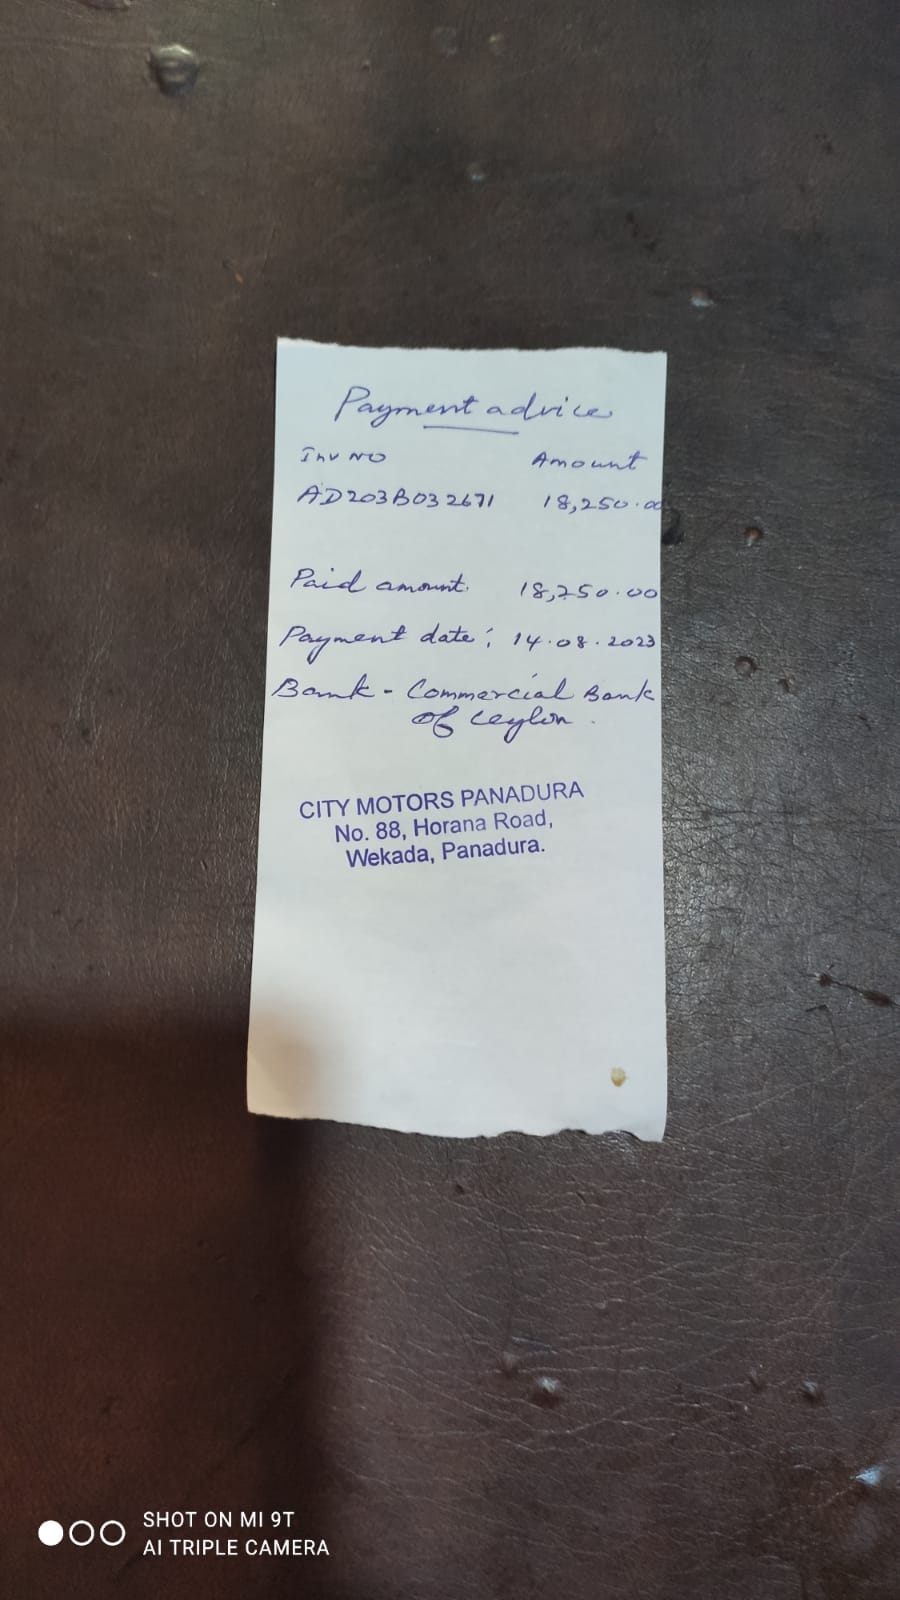 Payment advice
Inv NO Amount
AD203B032671 18,250.00
Paid amount. 18,250.00
Payment date: 14.08.2023
Bank - Commercial Bank
of Ceylon.
CITY MOTORS PANADURA
No. 88, Horana Road,
Wekada, Panadura.
SHOT ON MI 9T
AI TRIPLE CAMERA